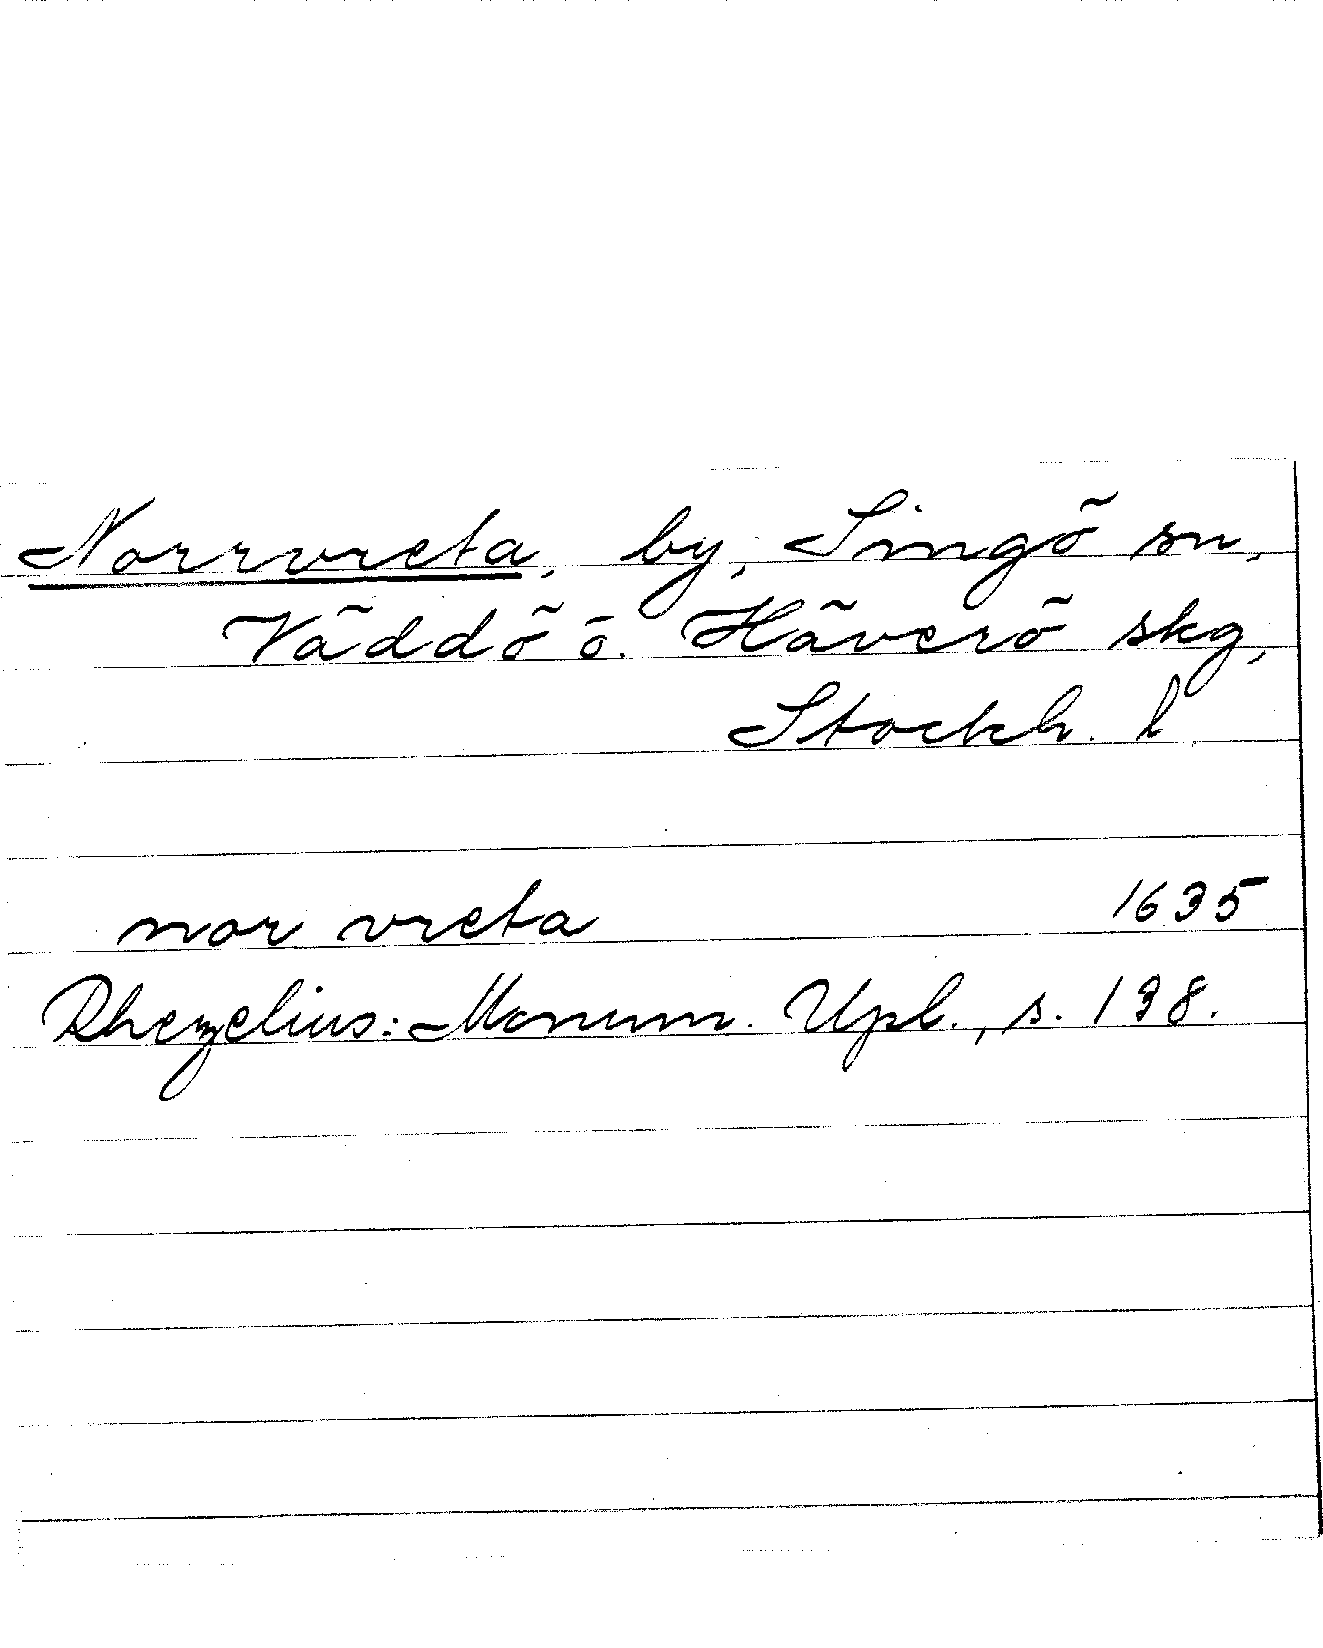 Norrvreta, by, Singö sn,
Väddö o. Häverö skg,
Stockh. l
nor vreta 1635
Rhezelius: Monum. Upl., s. 138.